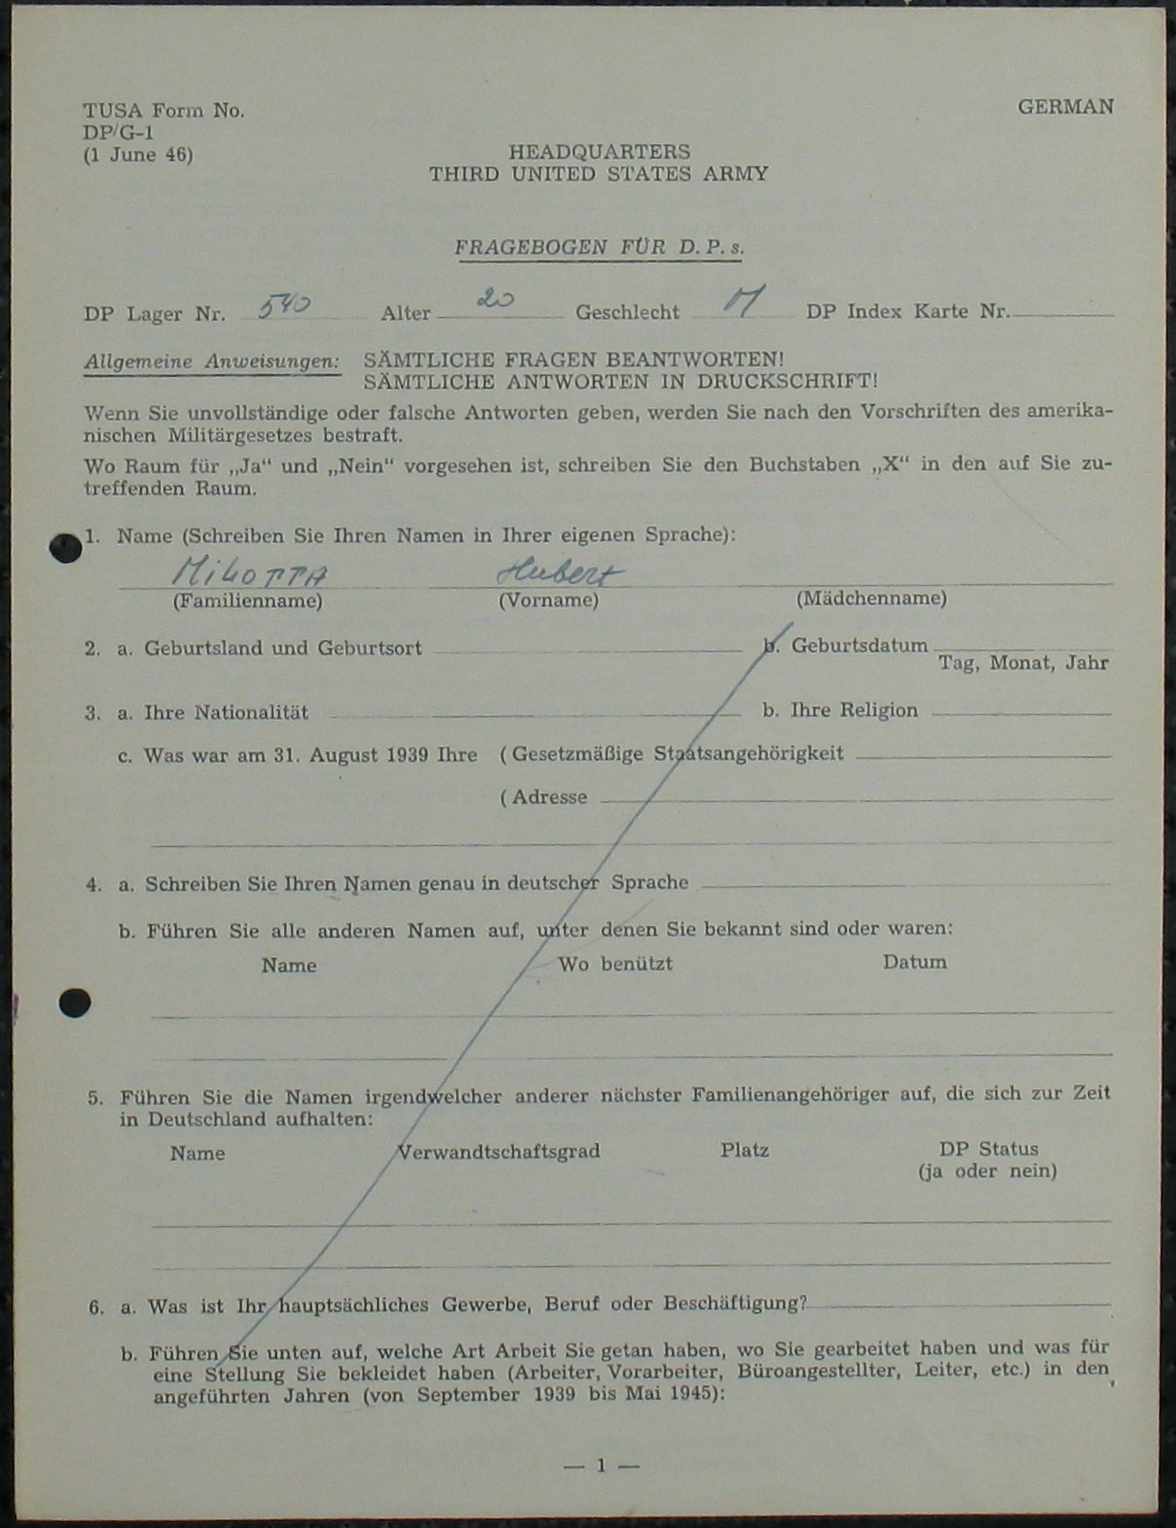 TUSA Form No.
DP/G-1
(1 June 46)
GERMAN
HEADQUARTERS
THIRD UNITED STATES ARMY
FRAGEBOGEN FÜR D. P. s.
DP Lager Nr. 540 Alter 20 Geschlecht M DP Index Karte Nr.
Allgemeine Anweisungen: SÄMTLICHE FRAGEN BEANTWORTEN!
SÄMTLICHE ANTWORTEN IN DRUCKSCHRIFT!
Wenn Sie unvollständige oder falsche Antworten geben, werden Sie nach den Vorschriften des amerika-
nischen Militärgesetzes bestraft.
Wo Raum für „Ja“ und „Nein“ vorgesehen ist, schreiben Sie den Buchstaben „X“ in den auf Sie zu-
treffenden Raum.
1. Name (Schreiben Sie Ihren Namen in Ihrer eigenen Sprache):
Hubert
(Familienname) (Vorname) (Mädchenname)
2. a. Geburtsland und Geburtsort b. Geburtsdatum
Tag, Monat, Jahr
3. a. Ihre Nationalität b. Ihre Religion
c. Was war am 31. August 1939 Ihre (Gesetzmäßige Staatsangehörigkeit
(Adresse
4. a. Schreiben Sie Ihren Namen genau in deutscher Sprache
b. Führen Sie alle anderen Namen auf, unter denen Sie bekannt sind oder waren:
Name Wo benützt Datum
5. Führen Sie die Namen irgendwelcher anderer nächster Familienangehöriger auf, die sich zur Zeit
in Deutschland aufhalten:
Name Verwandtschaftsgrad Platz DP Status
(ja oder nein)
6. a. Was ist Ihr hauptsächliches Gewerbe, Beruf oder Beschäftigung?
b. Führen Sie unten auf, welche Art Arbeit Sie getan haben, wo Sie gearbeitet haben und was für
eine Stellung Sie bekleidet haben (Arbeiter, Vorarbeiter, Büroangestellter, Leiter, etc.) in den
angeführten Jahren (von September 1939 bis Mai 1945):
— 1 —